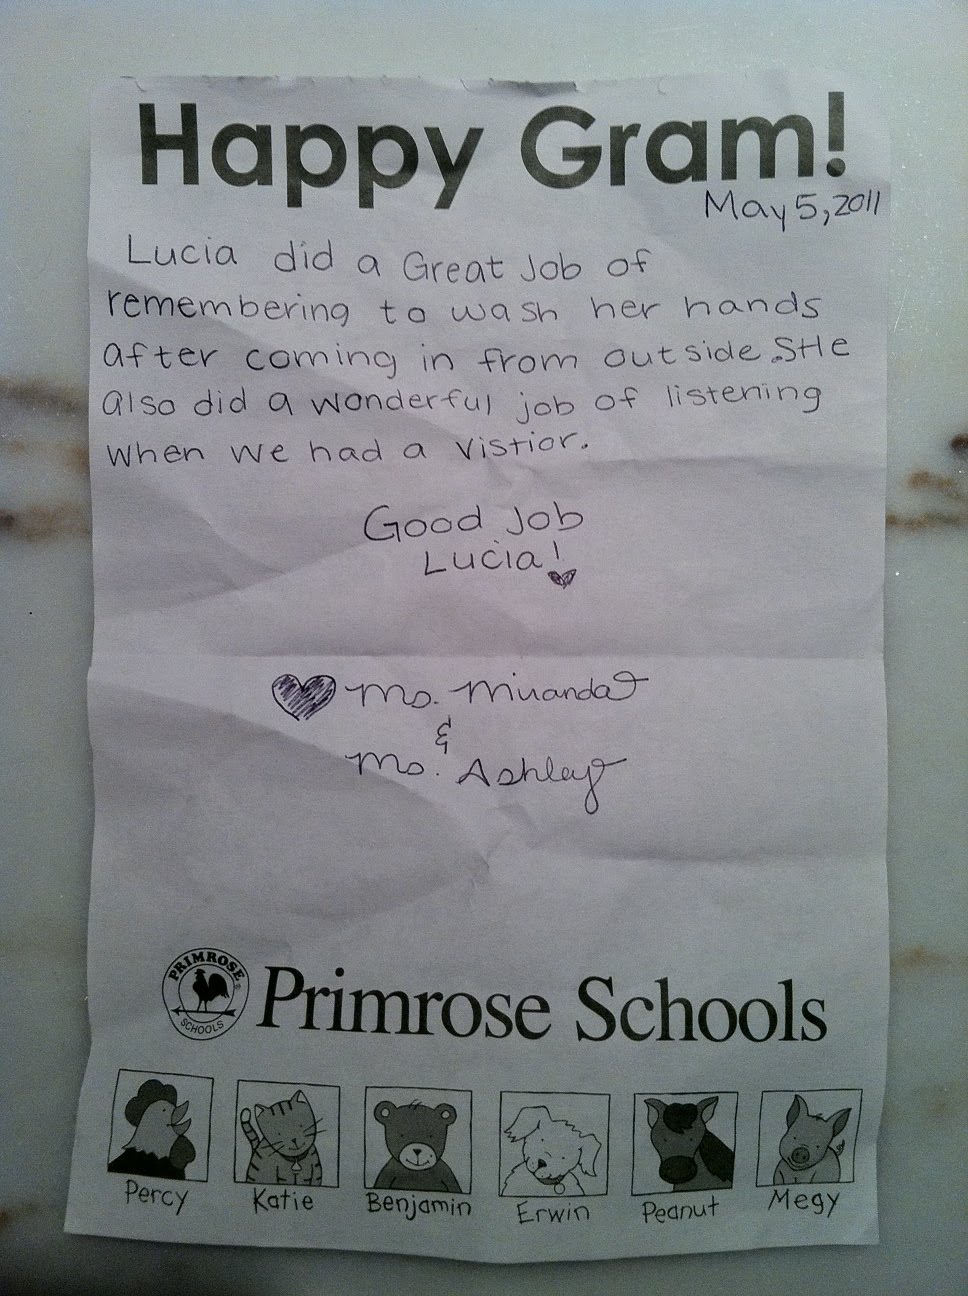 Happy Gram!
May 5, 2011
Lucia did a Great Job of
remembering to wash her hands
after coming in from outside. SHe
also did a wonderful job of listening
when we had a vistior.
Good Job
Lucia!
Ms. Miranda
&
Ms. Ashley
PRIMROSE
SCHOOLS
Primrose Schools
Percy Katie Benjamin Erwin Peanut Megy